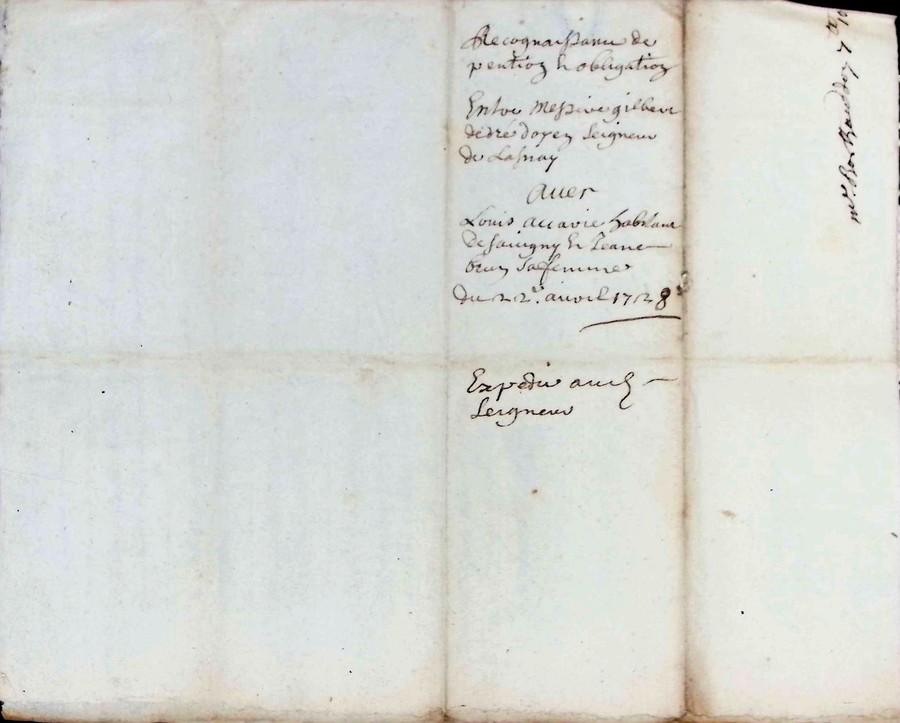 Recognaissance de
pention et obligation
Entre Messire gilbert
dedré doyen Seigneur
de Lasnay
avec
Louis accarie habitant
de savigny et Jeane
brun sa femme
du 22e. avril 1728
Expedié aud
Seigneur